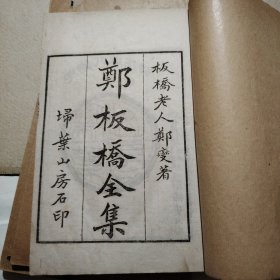 板橋老人鄭燮著
鄭板橋全集
埽葉山房石印